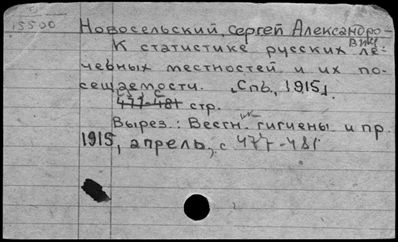 15500
Новосельский, Сергей Александро-
вич
К статистике русских ле-
чебных местностей и их по-
сещаемости. Спб, 1915,
477-481 стр.
Вырез.: Вестн. гигиены и пр.
1915, апрель, с 477-481